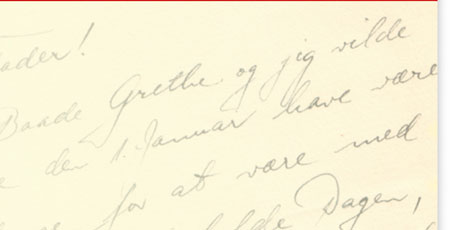 ader!
Baade Grethe og jeg vilde
den 1. Januar have være
for at være med
Dagen,